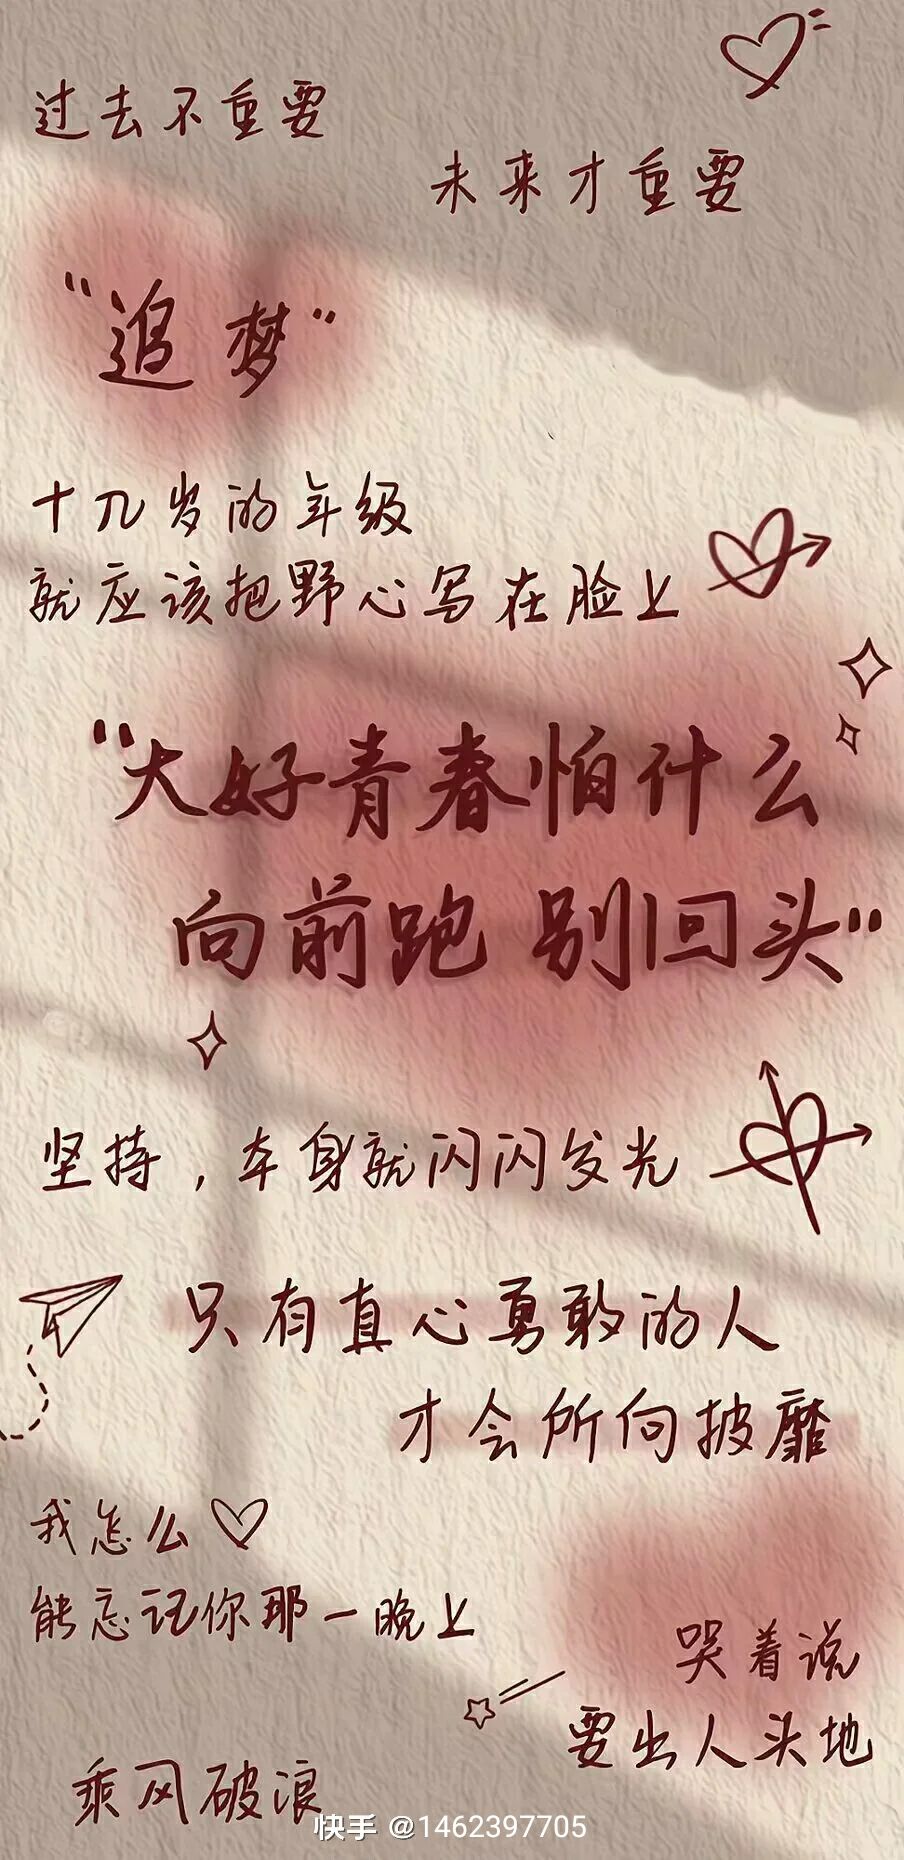 过去不重要
未来才重要
"追梦"
十几岁的年级
就应该把野心写在脸上
"大好青春怕什么
向前跑 别回头"
坚持，本身就闪闪发光
只有真心勇敢的人
才会所向披靡
我怎么
能忘记你那一晚上
哭着说
要出人头地
乘风破浪
快手 @1462397705